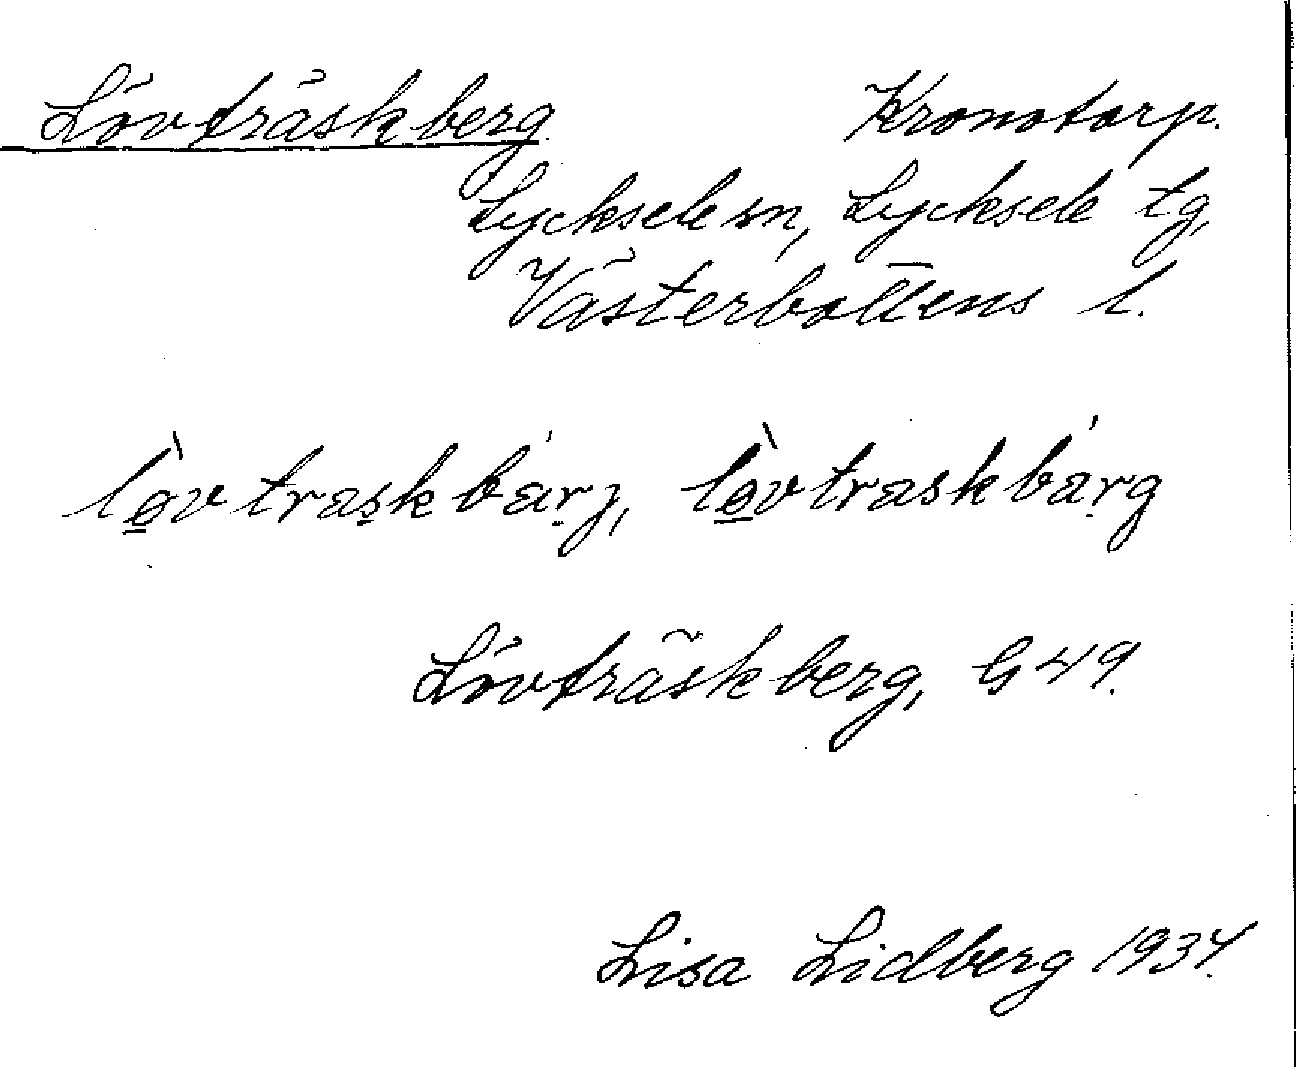 Lövträskberg Kronotorp.
Lycksele sn, Lycksele tg,
Västerbottens l.
lòvtraskbárj, lòvtraskbárg
Lövträskberg, G 49.
Lisa Lidberg 1934.